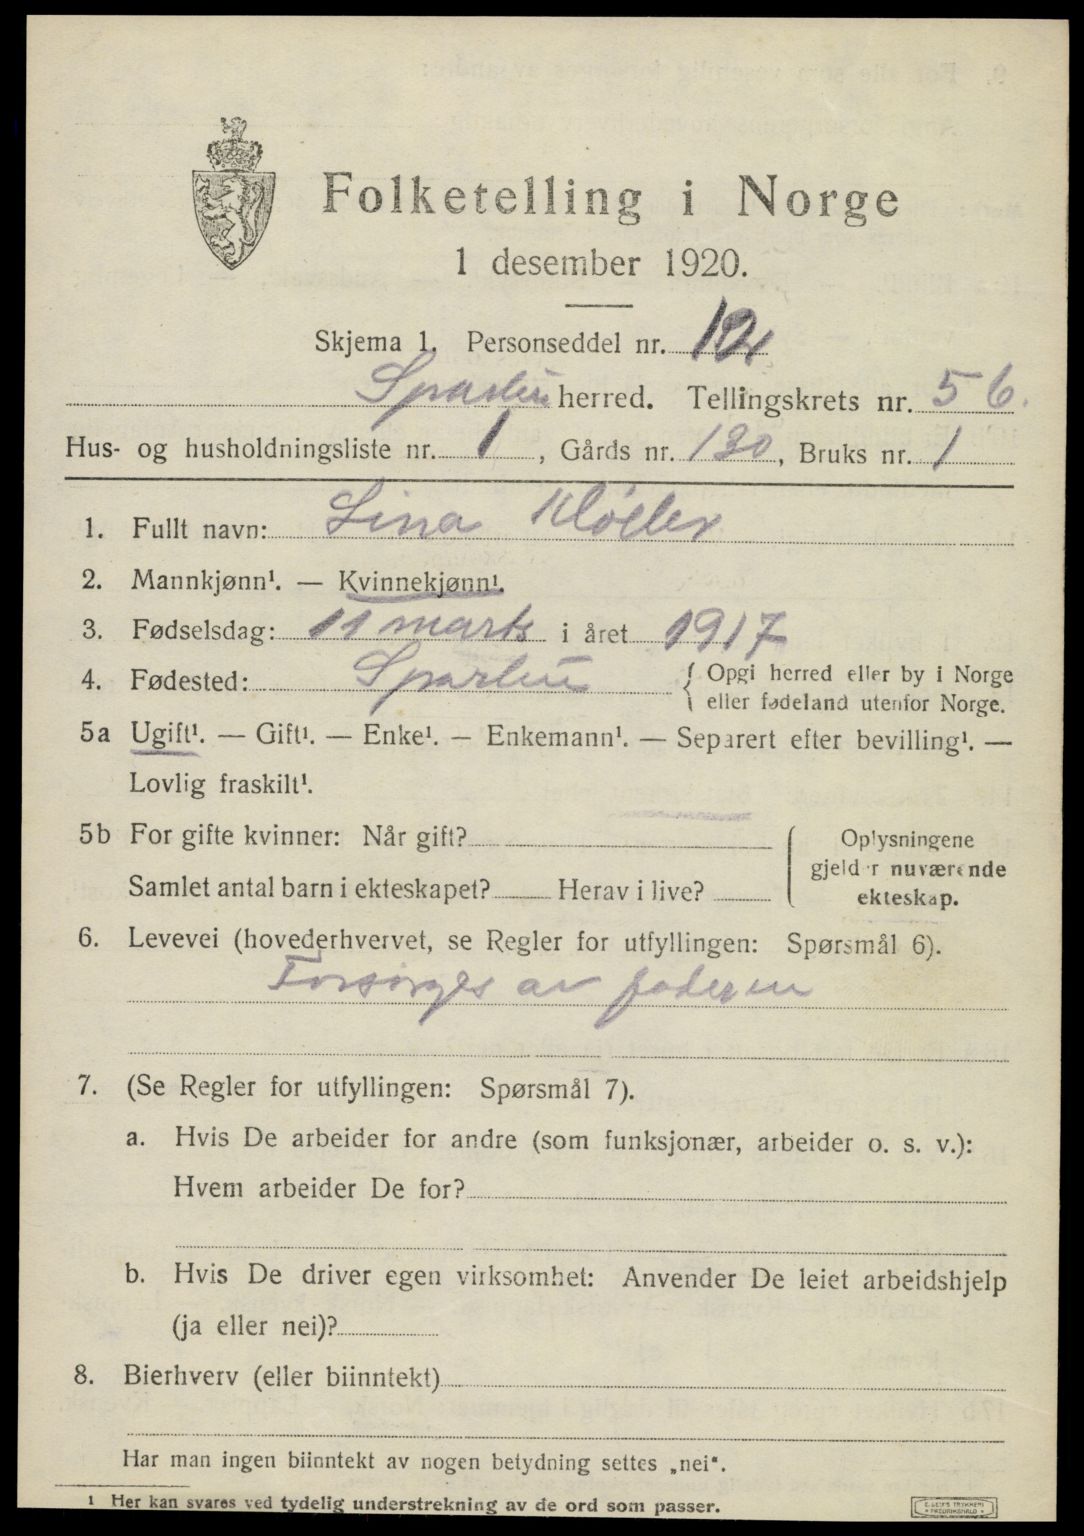 Folketelling i Norge
1 desember 1920.
Skjema 1. Personseddel nr. 12
Sparbu herred. Tellingskrets nr. 5 6.
Hus- og husholdningsliste nr. 1, Gårds nr. 130, Bruks nr. 1
1. Fullt navn: Lina
2. Mannkjønn¹. — Kvinnekjønn¹.
3. Fødselsdag: 11 marts i året 1917
4. Fødested: Sparbu { Opgi herred eller by i Norge
eller fødeland utenfor Norge.
5a Ugift¹. — Gift¹. — Enke¹. — Enkemann¹. — Separert efter bevilling¹. —
Lovlig fraskilt¹.
5b For gifte kvinner: Når gift?
Samlet antal barn i ekteskapet? Herav i live?
{ Oplysningene
gjelder nuværende
ekteskap.
6. Levevei (hovederhvervet, se Regler for utfyllingen: Spørsmål 6).
Forsørges av faderen
7. (Se Regler for utfyllingen: Spørsmål 7).
a. Hvis De arbeider for andre (som funksjonær, arbeider o. s. v.):
Hvem arbeider De for?
b. Hvis De driver egen virksomhet: Anvender De leiet arbeidshjelp
(ja eller nei)?
8. Bierhverv (eller biinntekt)
Har man ingen biinntekt av nogen betydning settes „nei“.
¹ Her kan svares ved tydelig understrekning av de ord som passer.